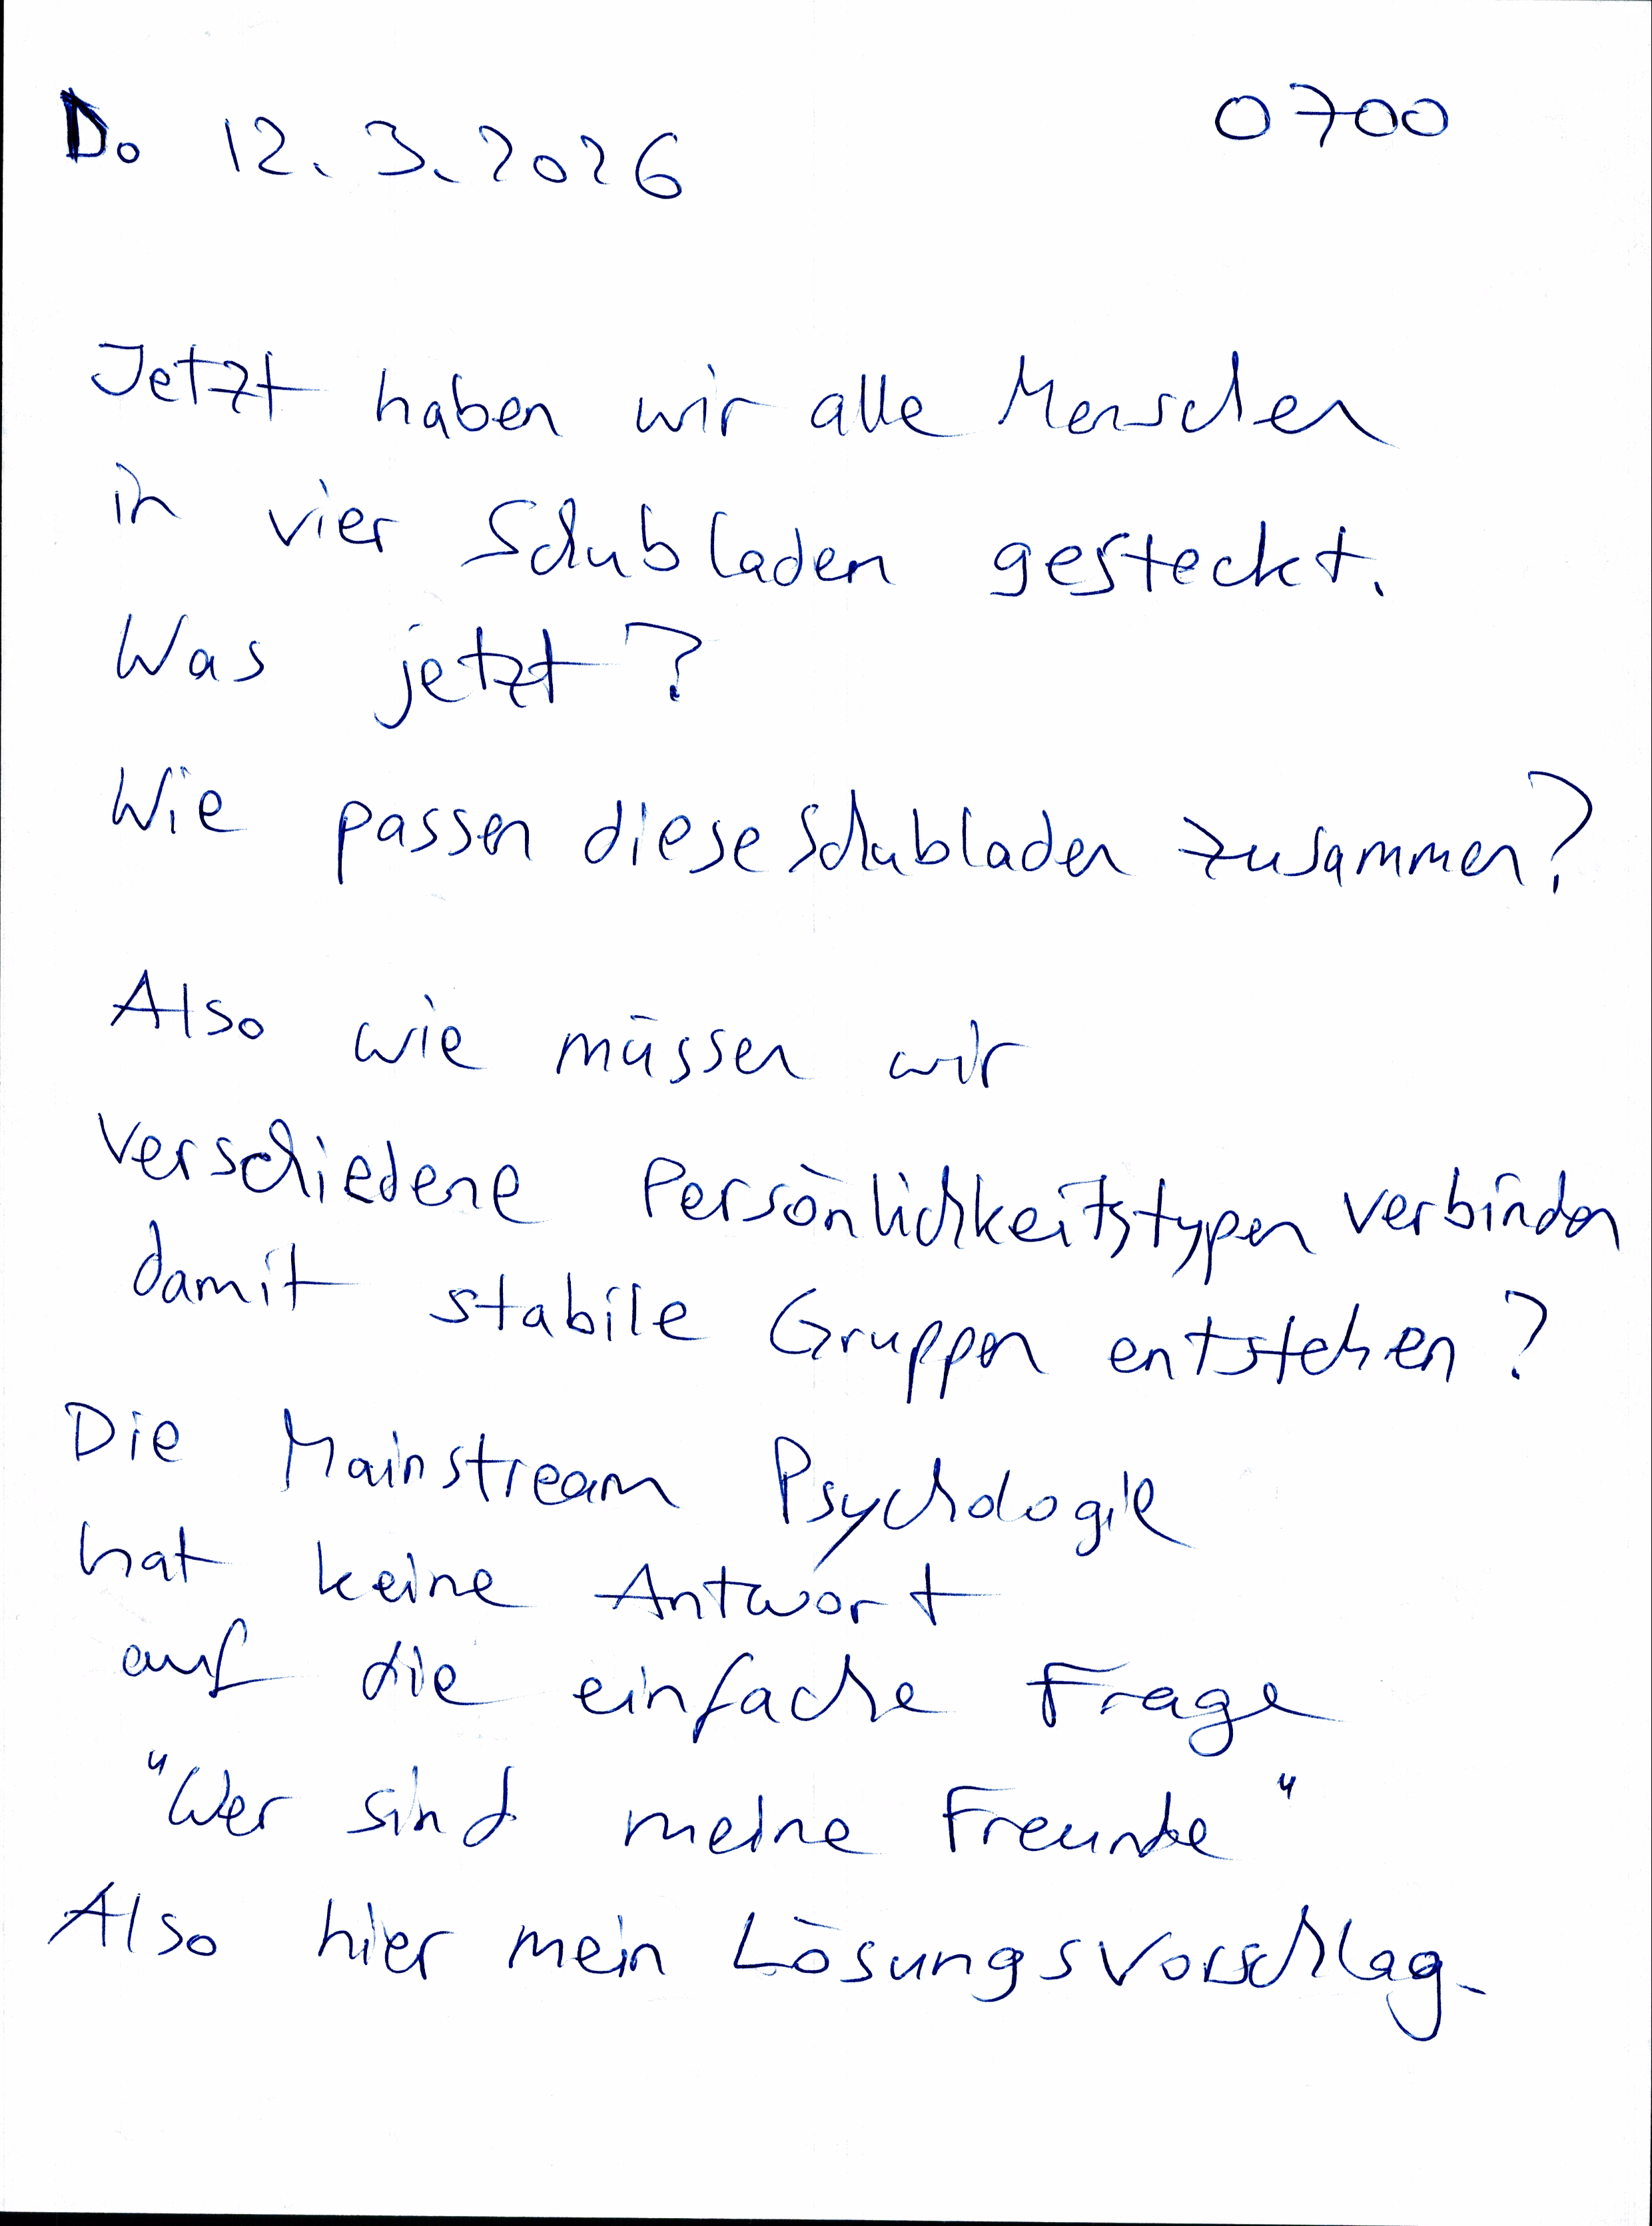 Do 12.3.2026 0700
Jetzt haben wir alle Menschen
in vier Schubladen gesteckt.
Was jetzt?
Wie passen diese Schubladen zusammen?
Also wie müssen wir
verschiedene Persönlichkeitstypen verbinden
damit stabile Gruppen entstehen?
Die Mainstream Psychologie
hat keine Antwort
auf die einfache Frage
"Wer sind meine Freunde"
Also hier mein Lösungsvorschlag.